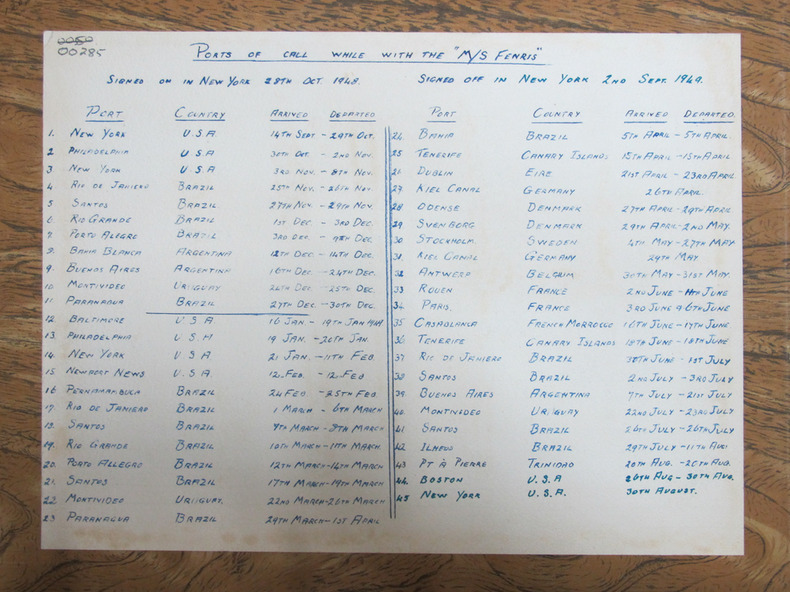 0050
00285
PORTS OF CALL WHILE WITH THE "M/S FENRIS"
SIGNED ON IN NEW YORK 28TH OCT 1948. SIGNED OFF IN NEW YORK 2ND SEPT. 1949.
PORT COUNTRY ARRIVED DEPARTED
1. NEW YORK U.S.A 14TH SEPT - 29TH OCT.
2 PHILADELPHIA U.S.A 30TH OCT - 2ND NOV.
3 NEW YORK U.S.A 3RD NOV. - 8TH NOV.
4 RIO DE JANIERO BRAZIL 25TH NOV. - 26TH NOV.
5 SANTOS BRAZIL 27TH NOV. - 29TH NOV.
6 RIO GRANDE BRAZIL 1ST DEC. - 3RD DEC.
7 PORTO ALEGRO BRAZIL 3RD DEC. - 9TH DEC.
8. BAHIA BLANCA ARGENTINA 12TH DEC. - 14TH DEC.
9. BUENOS AIRES ARGENTINA 16TH DEC. - 24TH DEC.
10. MONTIVIDEO URIGUAY DEC - 25TH DEC.
11. PARANAGUA BRAZIL 27TH DEC. - 30TH DEC.
12. BALTIMORE U.S.A 16 JAN. - 19TH JAN
13. PHILADELPHIA U.S.A 19 JAN. - 20TH JAN.
14. NEW YORK U.S.A 21 JAN. - 11TH FEB.
15 NEWPORT NEWS U.S.A. 12. FEB. - 12. FEB
16 PERNAMAMBUCA BRAZIL 24 FEB - 25TH FEB.
17. RIO DE JANIERO BRAZIL 1 MARCH - 6TH MARCH
18. SANTOS BRAZIL 7TH MARCH - 8TH MARCH
19. RIO GRANDE BRAZIL 10TH MARCH - 11TH MARCH
20. PORTO ALLEGRO BRAZIL 12TH MARCH - 16TH MARCH
21. SANTOS BRAZIL 17TH MARCH - 19TH MARCH
22 MONTIVIDEO URIGUAY. 22ND MARCH - 26TH MARCH
23 PARANAGUA BRAZIL 29TH MARCH - 1ST APRIL
PORT COUNTRY ARRIVED DEPARTED
24 BAHIA BRAZIL 5TH APRIL - 5TH APRIL.
25 TENERIFE CANARY ISLANDS 15TH APRIL - 15TH APRIL
26 DUBLIN EIRE 21ST APRIL - 23RD APRIL
27 KIEL CANAL GERMANY 26TH APRIL.
28 ODENSE DENMARK 27TH APRIL - 29TH APRIL
29 SVENBORG DENMARK 29TH APRIL - 2ND MAY.
30 STOCKHOLM SWEDEN 4TH MAY - 27TH MAY
31 KIEL CANAL GERMANY 29TH MAY
32 ANTWERP BELGIUM 30TH MAY - 31ST MAY.
33 ROUEN FRANCE 2ND JUNE - 11TH JUNE
34 PARIS. FRANCE 3RD JUNE 6TH JUNE
35 CASABLANCA FRENCH MORROCCO 16TH JUNE - 17TH JUNE.
36 TENERIFE CANARY ISLANDS 18TH JUNE - 18TH JUNE
37 RIO DE JANIERO BRAZIL 30TH JUNE - 1ST JULY
38 SANTOS BRAZIL 2ND JULY - 3RD JULY
39 BUENOS AIRES ARGENTINA 7TH JULY - 21ST JULY
40 MONTIVIDEO URIGUAY 22ND JULY - 23RD JULY
41 SANTOS BRAZIL 26TH JULY - 26TH JULY
42 ILHEUS BRAZIL 29TH JULY - 11TH AUG
43 PT À PIERRE TRINIDAD 20TH AUG. - 20TH AUG.
44 BOSTON U.S.A 26TH AUG - 30TH AUG.
45 NEW YORK U.S.A. 30TH AUGUST.